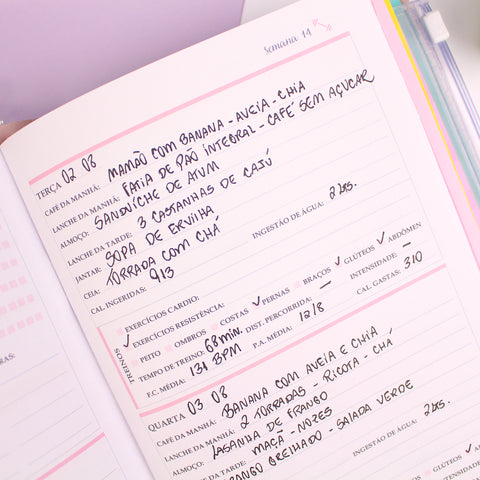 Semana 14
TERÇA 02 03
CAFÉ DA MANHÃ: MAMÃO COM BANANA - AVEIA - CHIA
LANCHE DA MANHÃ: FATIA DE PÃO INTEGRAL - CAFÉ SEM AÇUCAR
ALMOÇO: SANDUÍCHE DE ATUM
LANCHE DA TARDE: 3 CASTANHAS DE CAJÚ
JANTAR: SOPA DE ERVILHA
CEIA: TORRADA COM CHÁ
CAL. INGERIDAS: 913 INGESTÃO DE ÁGUA: 2 Lts.
TREINOS
EXERCÍCIOS CARDIO:
✓ EXERCÍCIOS RESISTÊNCIA:
PEITO OMBROS COSTAS ✓ PERNAS BRAÇOS ✓ GLÚTEOS ✓ ABDÔMEN
TEMPO DE TREINO: 68 min. DIST. PERCORRIDA: — INTENSIDADE: —
P.C. MÉDIA: 131 BPM P.A. MÉDIA: 12/8 CAL. GASTAS: 310
QUARTA 03 03
CAFÉ DA MANHÃ: BANANA COM AVEIA E CHIA
LANCHE DA MANHÃ: 2 TORRADAS - RICOTA - CHÁ
ALMOÇO: LASANHA DE FRANGO
LANCHE DA TARDE: MAÇA - NOZES
FRANGO GRELHADO - SALADA VERDE
INGESTÃO DE ÁGUA: 2 Lts.
GLÚTEOS
RAS: